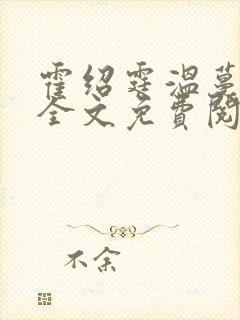 霍绍霆温蔓
全文免费阅
不余